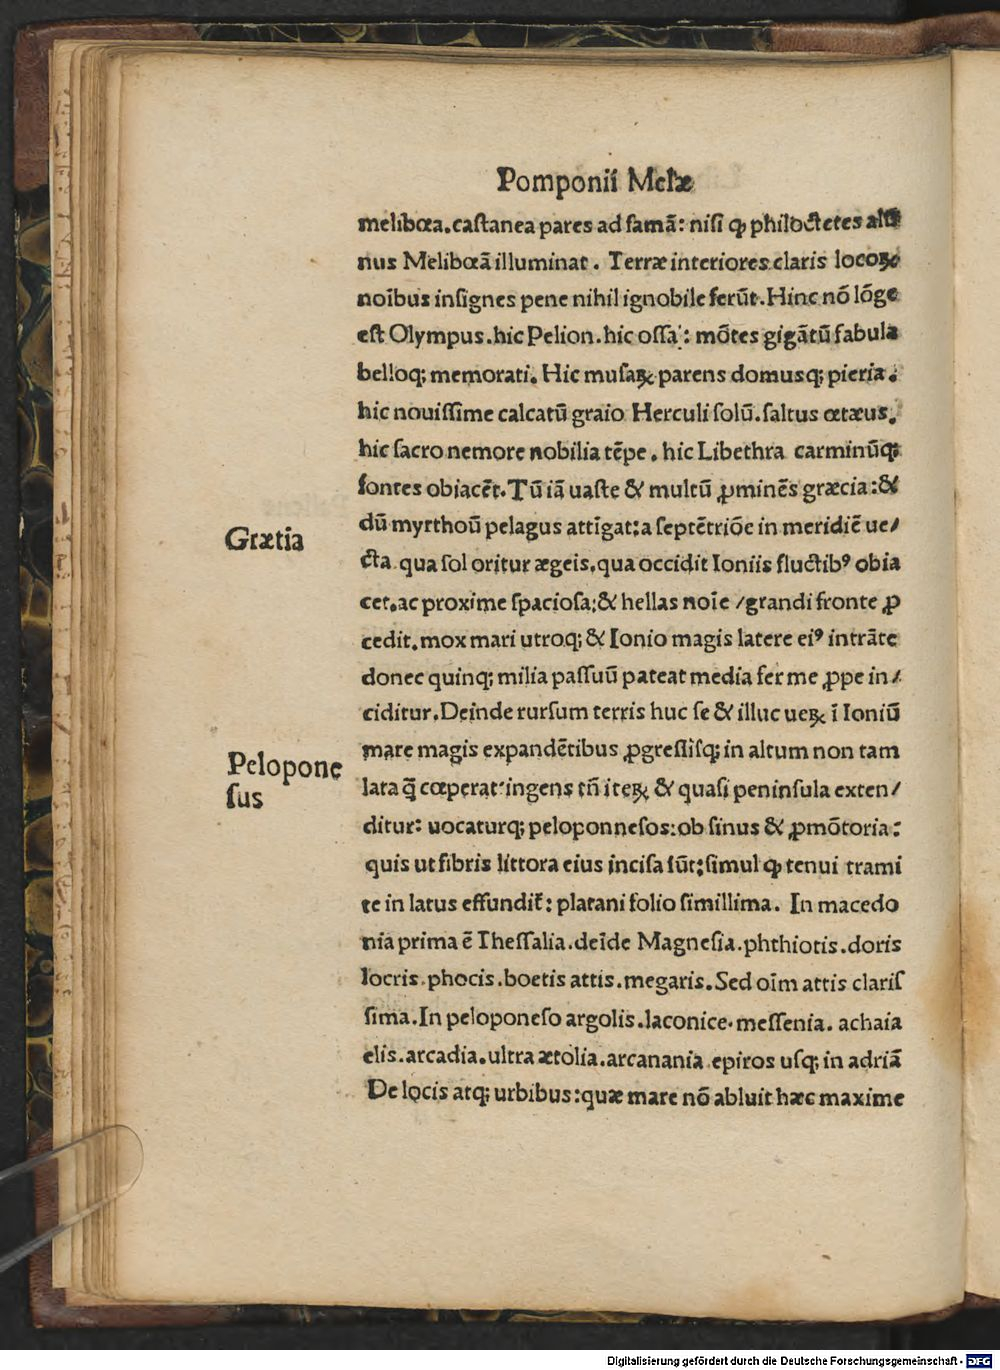 Pomponii Melæ
melibœa.castanea pares ad famã: nisi ꝙ philoctetes alũ
nus Melibœã illuminat. Terræ interiores claris locoꝝ
noĩbus insignes pene nihil ignobile ferũt.Hinc nõ lõge
est Olympus.hic Pelion.hic ossa: mõtes gigãtũ fabula
belloq; memorati. Hic musaꝝ parens domusq; pieria.
hic nouissime calcatũ graio Herculi solũ.saltus œtæus.
hic sacro nemore nobilia tẽpe. hic Libethra carminũq;
fontes obiacẽt.Tũ iã uaste & multũ ꝓminẽs græcia:&
Grætia
dũ myrthoũ pelagus attĩgat:a septẽtriõe in meridiẽ ue/
cta qua sol oritur ægeis.qua occidit Ioniis fluctibꝰ obia
cet.ac proxime spaciosa:& hellas noĩe /grandi fronte ꝓ
cedit.mox mari utroq; & Ionio magis latere eiꝰ intrãte
donec quinq; milia passuũ pateat media fer me ꝓpe in/
ciditur.Deinde rursum terris huc se & illuc ueꝝ ĩ Ioniũ
mare magis expandẽtibus ꝓgressisq; in altum non tam
Pelopone
sus
lata q̃ cœperat:ingens tñ iteꝝ & quasi peninsula exten/
ditur: uocaturq; peloponnesos:ob sinus & ꝓmõtoria:
quis ut fibris littora eius incisa sũt:simul ꝙ tenui trami
te in latus effundit̃: platani folio simillima. In macedo
nia prima ẽ Thessalia.deĩde Magnesia.phthiotis.doris
locris.phocis.boetis attis.megaris.Sed oĩm attis claris
sima.In peloponeso argolis.laconice.messenia. achaia
elis.arcadia.ultra ætolia.arcanania epiros usq; in adriã
De locis atq; urbibus:quæ mare nõ abluit hæc maxime
Digitalisierung gefördert durch die Deutsche Forschungsgemeinschaft - DFG